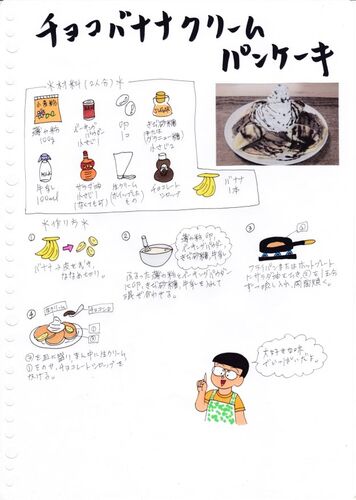 チョコバナナクリーム
パンケーキ
*材料(2人分)*
薄力粉
100g
ベーキング
パウダー
小さじ1
卵
1コ
きび砂糖
または
グラニュー糖
小さじ2
牛乳
100ml
サラダ油
小さじ1
(なくても可)
生クリーム
もの
チョコレート
シロップ
バナナ
1本
*作り方*
①
バナナは皮をむき、
ななめ切り。
②
薄力粉、卵、
ベーキングパウダー、
きび砂糖、牛乳
ふるった薄力粉とベーキングパウダー
に卵、きび砂糖、牛乳を入れて
混ぜ合わせる。
③
フライパンまたはホットプレート
にサラダ油をひき、②を
ずつ流し入れ、両面焼く。
④
生クリーム
チョコシロップ
①
③
③を皿に盛り、まん中に生クリーム、
①をのせ、チョコレートシロップを
かける。
大好きな味
でいっぱいだよ。